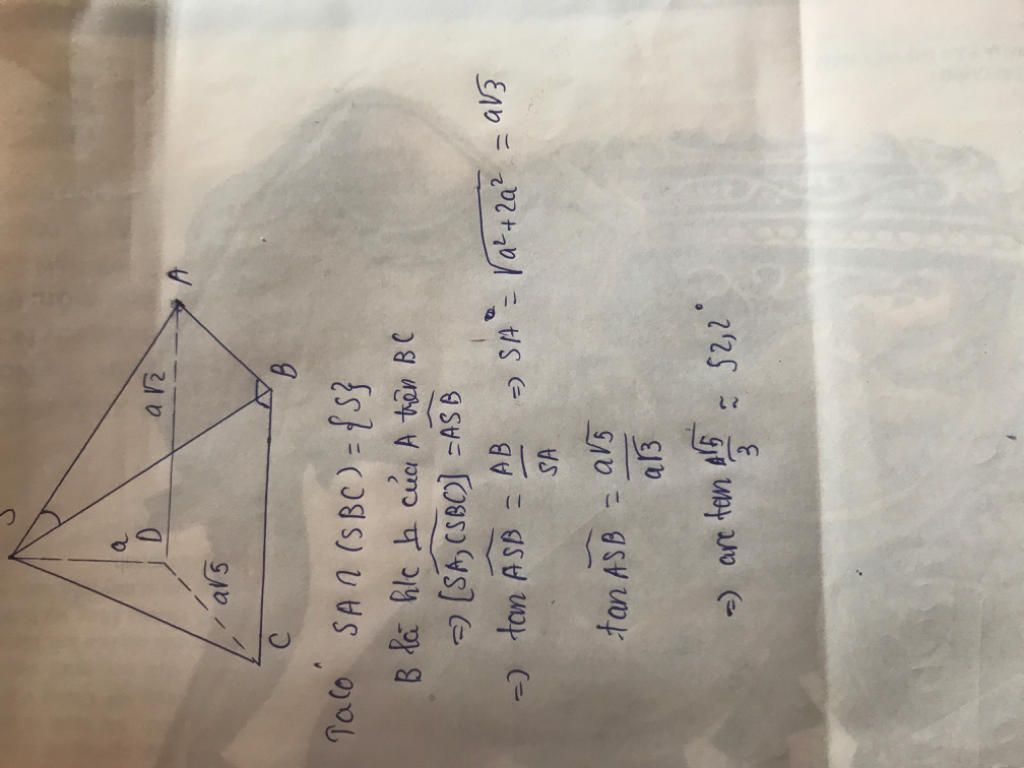 S
a
a√2
D
A
a√5
B
C
Ta có SA ∩ (SBC) = {S}
B là h/c ⊥ của A trên BC
⇒ [SA, (SBC)] = ASB
⇒ tan ASB = AB/SA ⇒ SA = √(a²+2a²) = a√3
tan ASB = a√5/a√3
⇒ arc tan √15/3 ≈ 52,2°